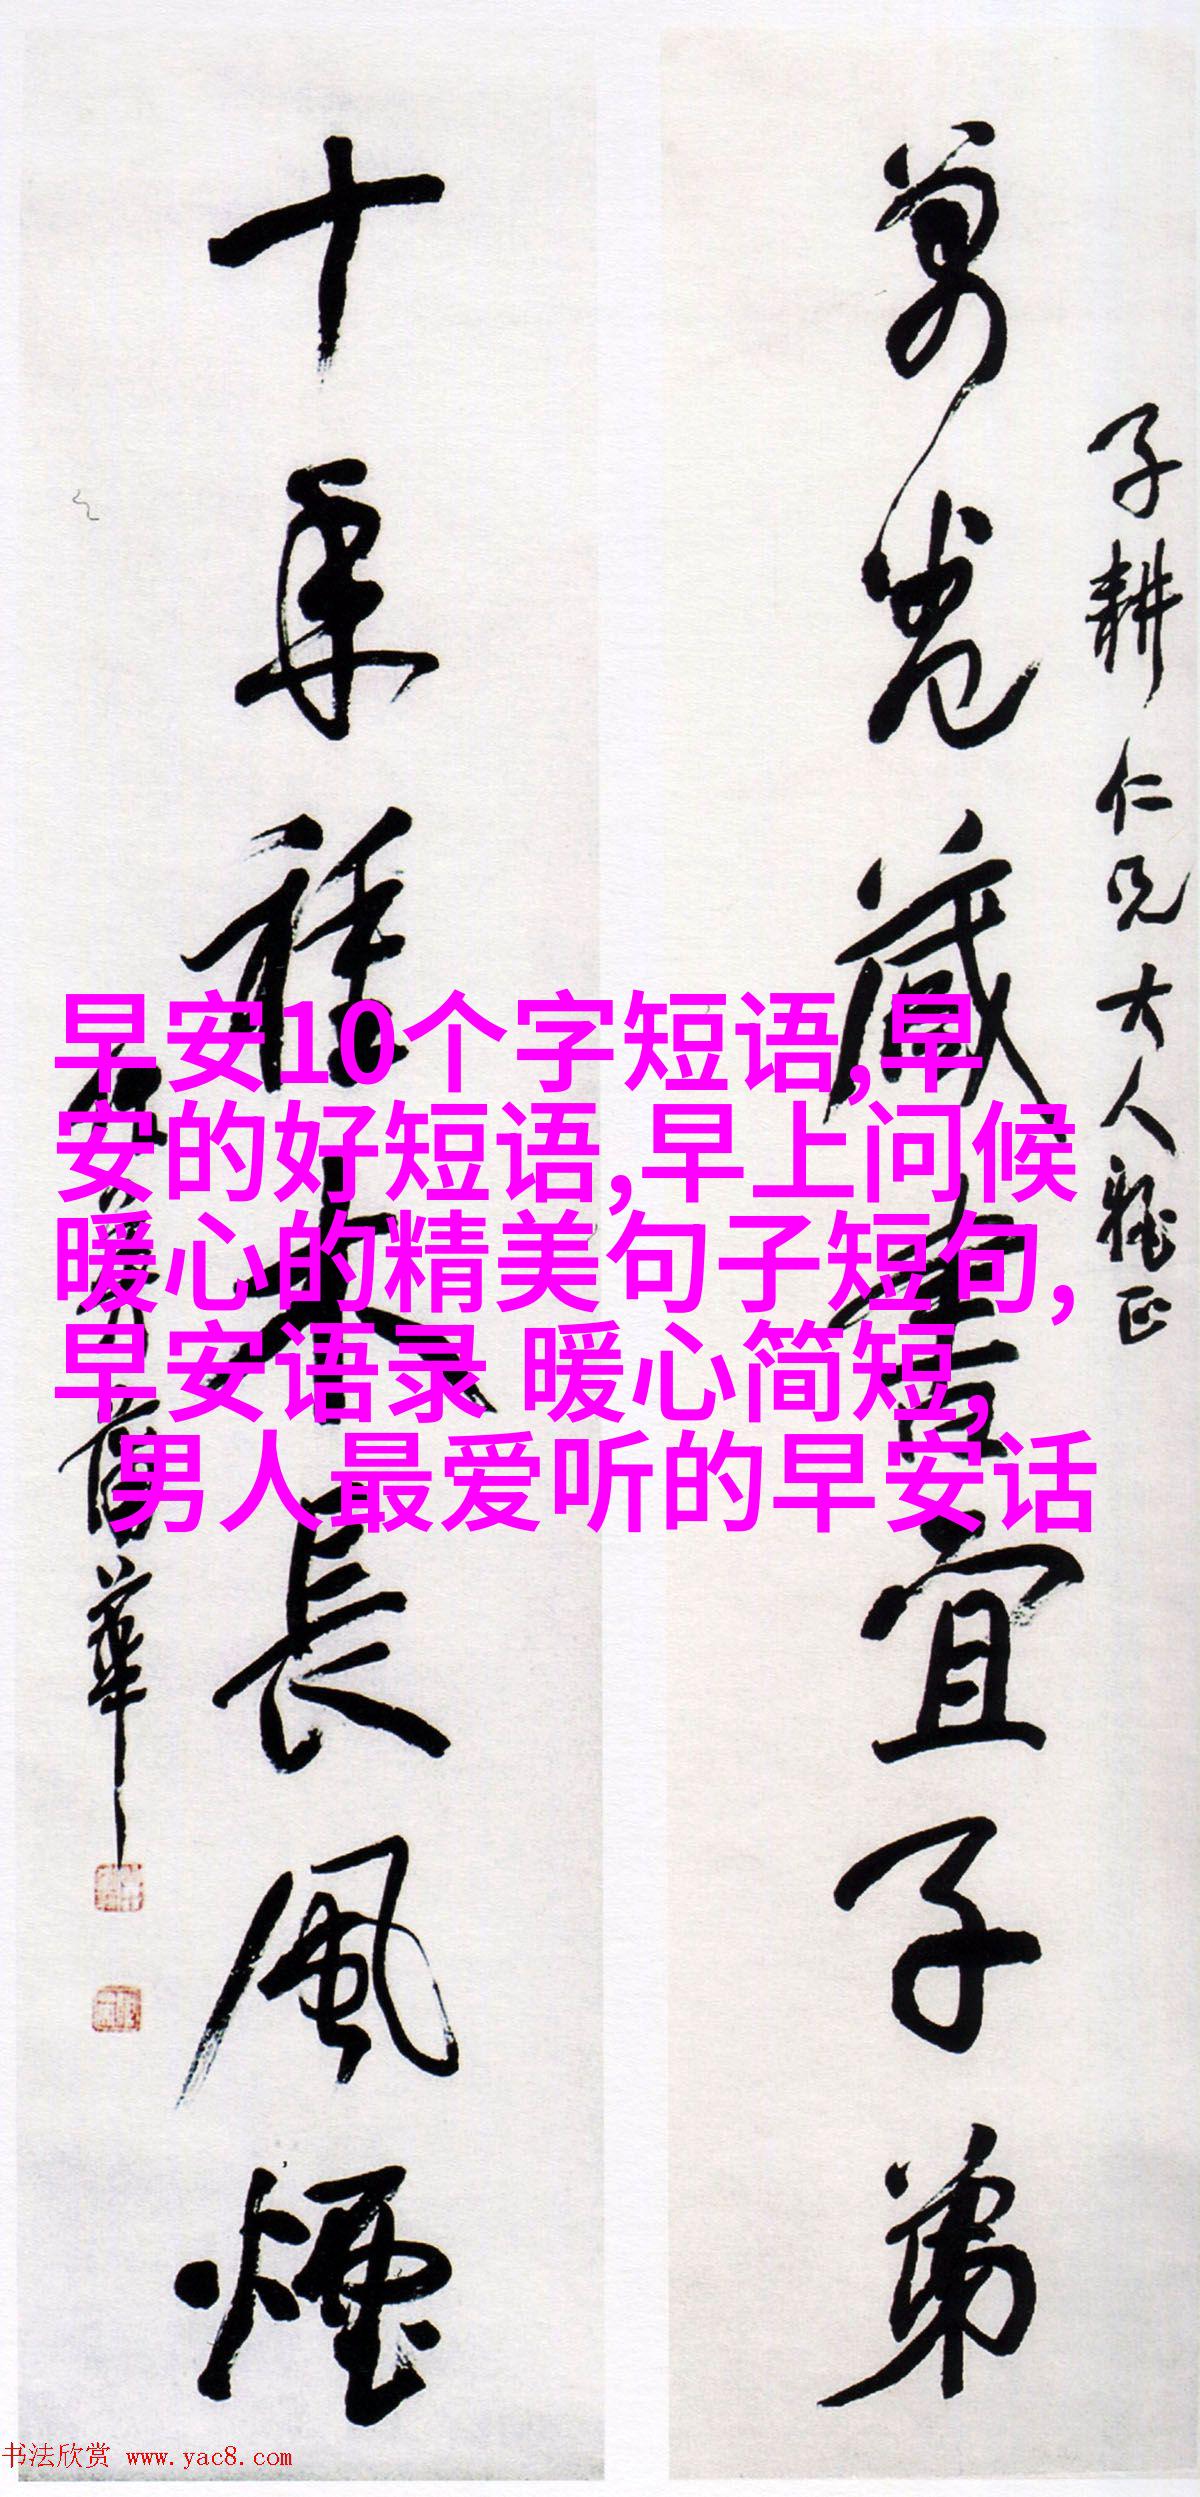 子耕仁兄大人雅正
萬卷藏書宜子弟
十年種木長風煙
蒲華
早安10个字短语,早
安的好短语,早上问候
暖心的精美句子短句,
早安语录 暖心简短,
男人最爱听的早安话
书法欣赏 www.yac8.com